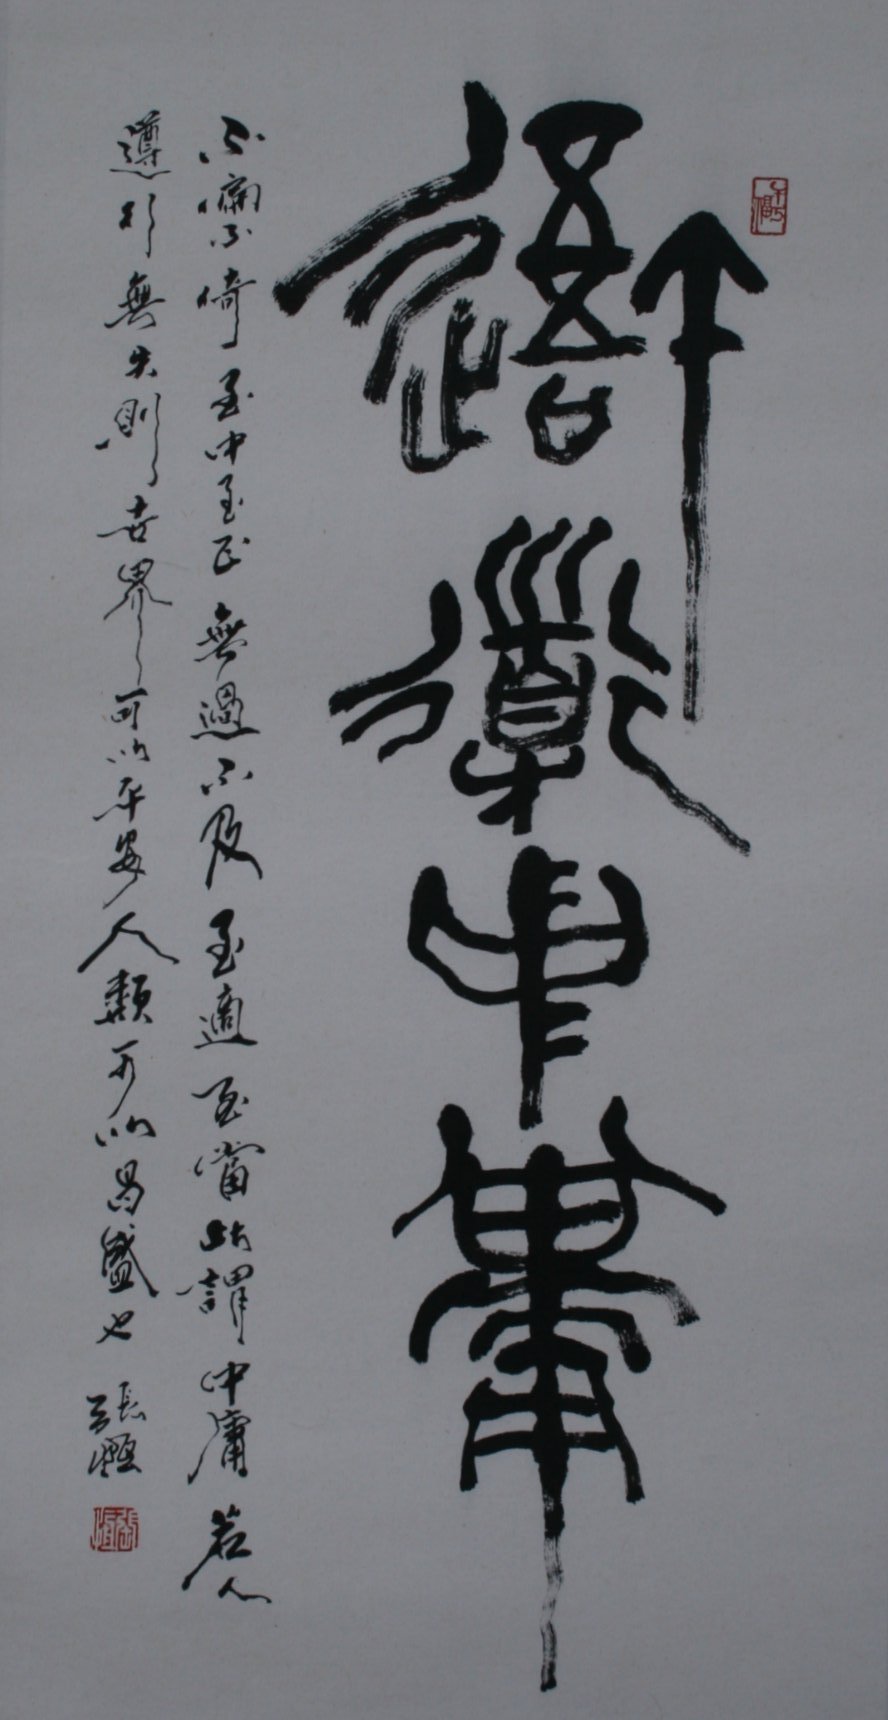 道中庸
不偏不倚至中至正無過不及至適至當此謂中庸若人
遵行無失則世界可以平安人類可以昌盛也 張